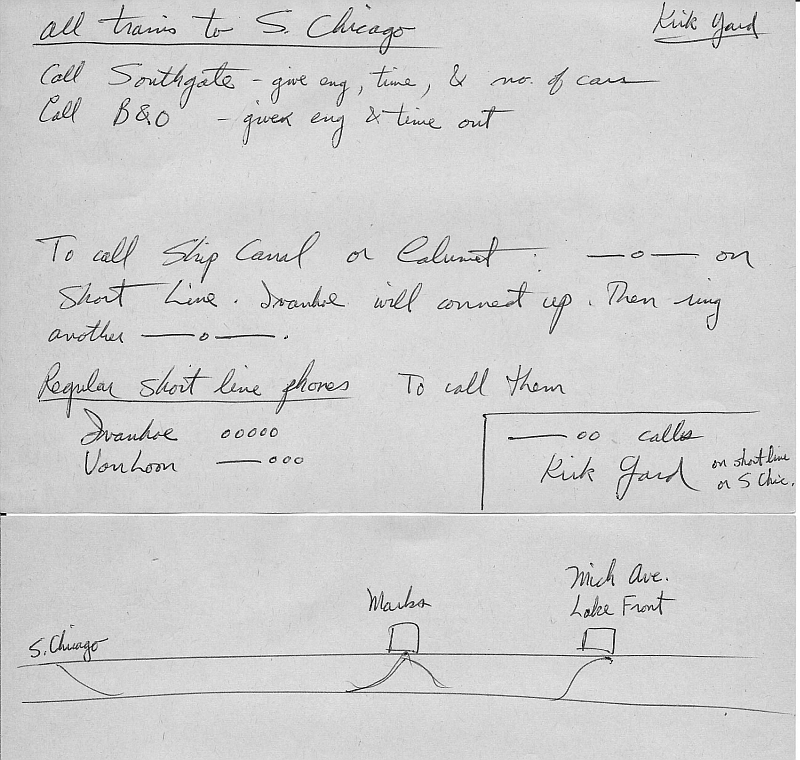 all trains to S. Chicago
Kirk Yard
Call Southgate - give eng, time, & no. of cars
Call B&O - given eng & time out
To call Ship Canal or Calumet : —o— on
Short Line. Ivanhoe will connect up. Then ring
another —o—.
Regular Short line phones To call them
Ivanhoe ooooo
VonLoon —ooo
—oo calls
Kirk Yard on short line
or S Chic.
Mich Ave.
Marks Lake Front
S. Chicago